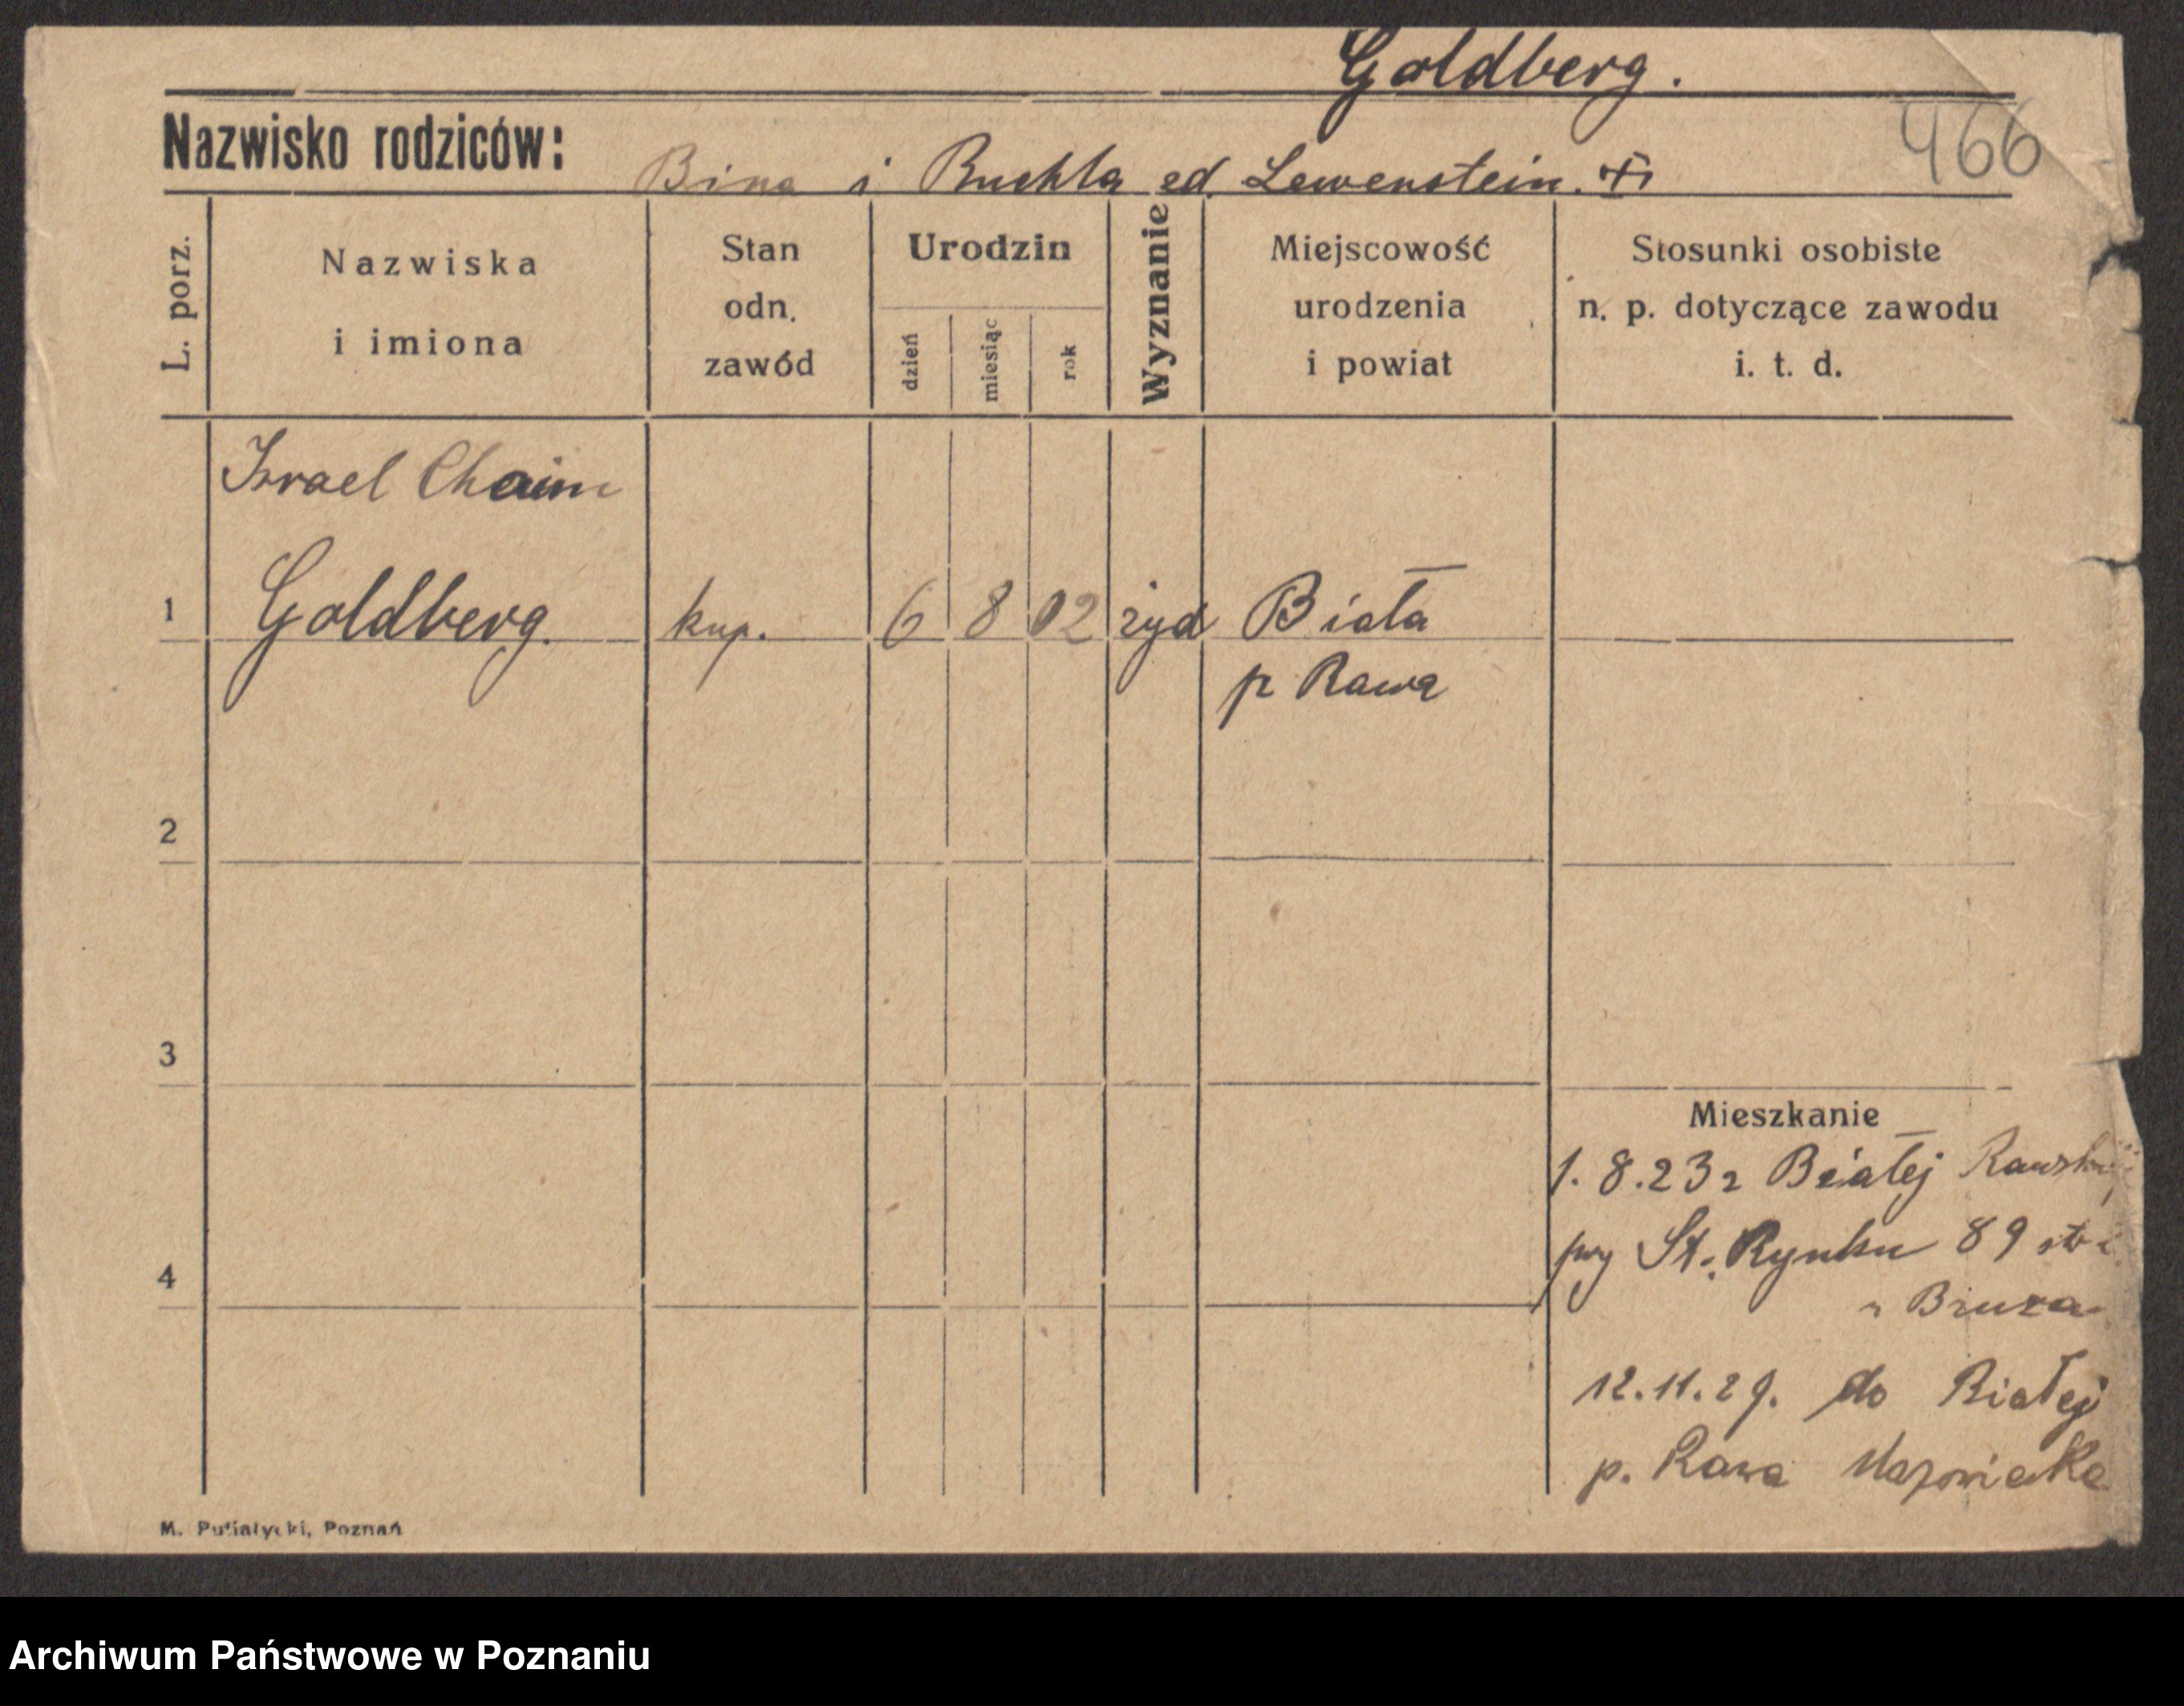 Goldberg.
466
Nazwisko rodziców:
Bina i Ruchla ed Lewenstein.
L. porz.
Nazwiska
i imiona
Stan
odn.
zawód
Urodzin
dzień
miesiąc
rok
Wyznanie
Miejscowość
urodzenia
i powiat
Stosunki osobiste
n. p. dotyczące zawodu
i. t. d.
Israel Chaim
1 Goldberg. kup. 6 8 02 żyd Biała
p Rawa
2
3
Mieszkanie
1.8.23 z Białej
St. Rynku 89
4
12.11.29. do Białej
p. Rawa Mazowiecka
M. Putiatycki, Poznań
Archiwum Państwowe w Poznaniu